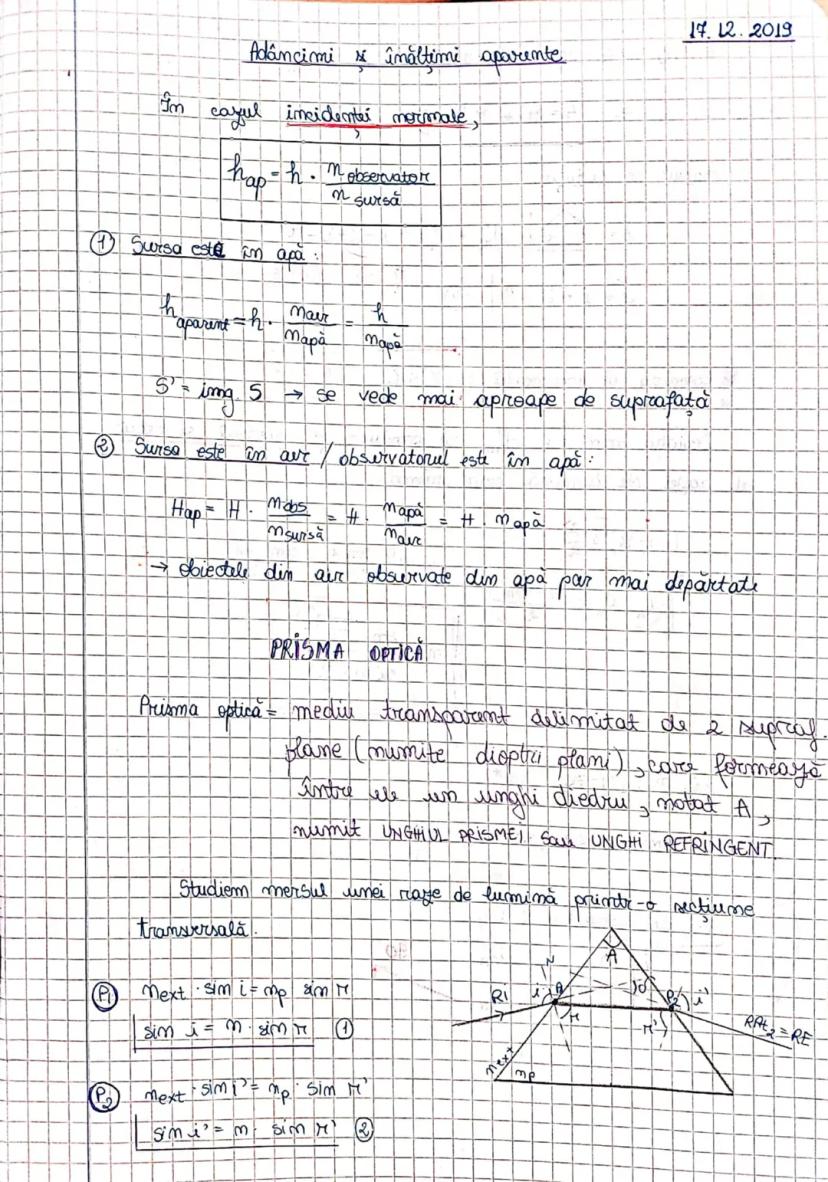 17.12.2019
Adâncimi și înălțimi aparente
În cazul incidenței normale,
hap = h · nobservator / nsursă
① Sursa este în apă:
haparent = h · naer / napă = h / napă
S' = img. S → se vede mai aproape de suprafață
② Sursa este în aer / observatorul este în apă:
Hap = H · nobs / nsursă = H · napă / naer = H · napă
→ obiectele din aer observate din apă par mai depărtate
PRISMA OPTICĂ
Prisma optică = mediu transparent delimitat de 2 supraf.
plane (numite dioptri plani), care formează
între ele un unghi diedru, notat A,
numit UNGHIUL PRISMEI sau UNGHI REFRINGENT.
Studiem mersul unei raze de lumină printr-o secțiune
transversală.
P1 next · sin i = np sin r
sin i = n · sin r ①
P2 next · sin i' = np · sin r'
sin i' = n · sin r' ②
A
N
RI i P2 i'
r r' RRt2 = RE
next np